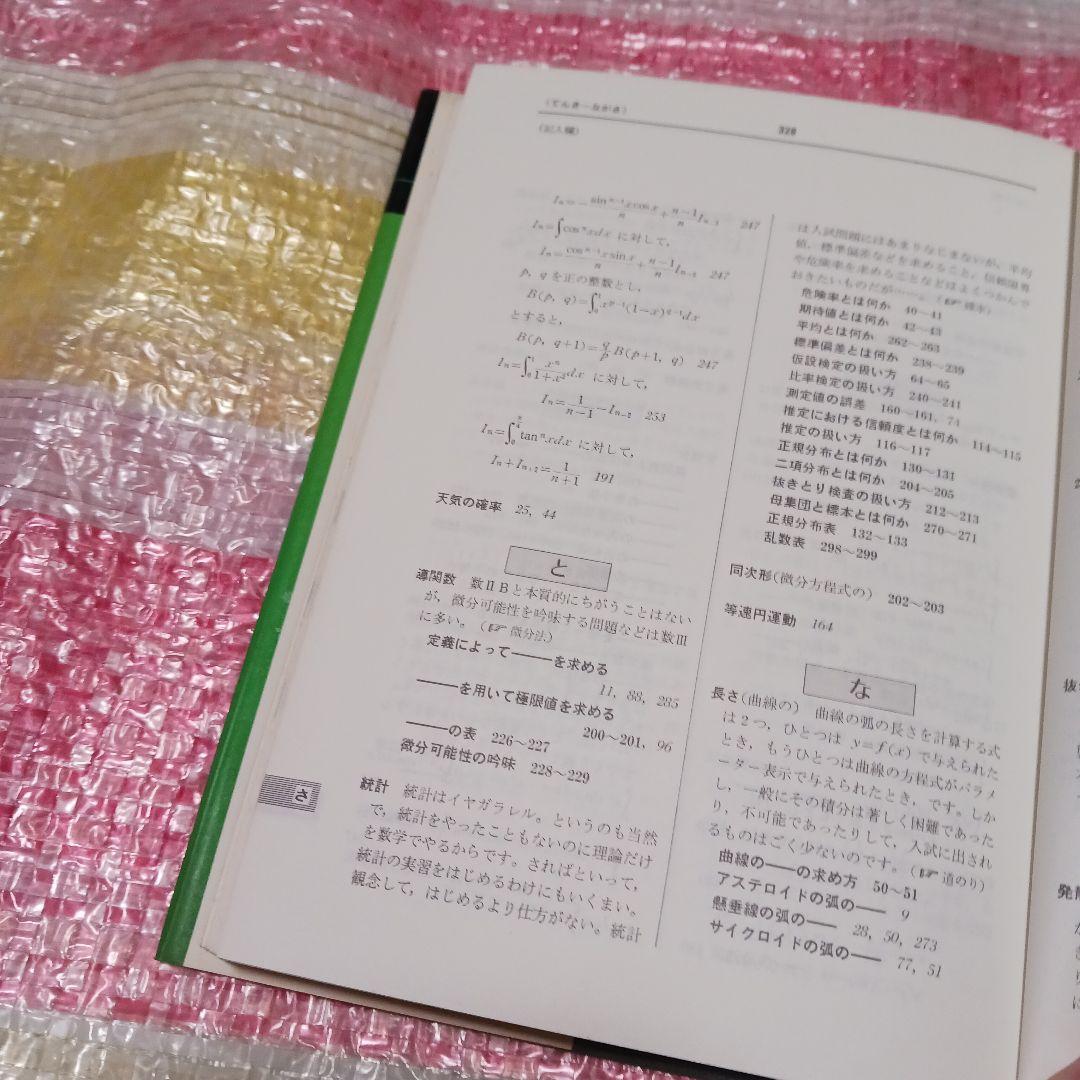 (てんき～ながさ)
328
(記入欄)
Iₙ=-sinⁿ⁻¹xcosx/n+n-1/n Iₙ₋₂ 247
Iₙ=∫cosⁿxdx に対して,
Iₙ=cosⁿ⁻¹xsinx/n+n-1/n Iₙ₋₂ 247
p, q を正の整数とし,
B(p, q)=∫₀¹xᵖ⁻¹(1-x)^{q-1}dx
とすると,
B(p, q+1)=q/p B(p+1, q) 247
Iₙ=∫₀¹xⁿ/1+x² dx に対して,
Iₙ=1/n-1-Iₙ₋₂ 253
Iₙ=∫₀^{π/4}tanⁿxdx に対して,
Iₙ+Iₙ₊₂=1/n+1 191
天気の確率 25, 44
と
導関数 数ⅡBと本質的にちがうことはない
が, 微分可能性を吟味する問題などは数Ⅲ
に多い。(☞ 微分法)
定義によって――を求める
11, 88, 285
――を用いて極限値を求める
200～201, 96
――の表 226～227
微分可能性の吟味 228～229
さ
統計 統計はイヤガラレル。というのも当然
で, 統計をやったこともないのに理論だけ
を数学でやるからです。さればといって,
統計の実習をはじめるわけにもいくまい。
観念して, はじめるより仕方がない。統計
は入試問題にはあまりなじまないが, 平均
値, 標準偏差などを求めること, 信頼限界
や危険率を求めることなどはよくつかんで
おきたいものだが……。(☞ 確率)
危険率とは何か 40～41
期待値とは何か 42～43
平均とは何か 262～263
標準偏差とは何か 238～239
仮設検定の扱い方 64～65
比率検定の扱い方 240～241
測定値の誤差 160～161, 74
推定における信頼度とは何か 114～115
推定の扱い方 116～117
正規分布とは何か 130～131
二項分布とは何か 204～205
抜きとり検査の扱い方 212～213
母集団と標本とは何か 270～271
正規分布表 132～133
乱数表 298～299
同次形(微分方程式の) 202～203
等速円運動 164
な
長さ(曲線の) 曲線の弧の長さを計算する式
は2つ, ひとつは y=f(x) で与えられた
とき, もうひとつは曲線の方程式がパラメ
ーター表示で与えられたとき, です。しか
し, 一般にその積分は著しく困難であった
り, 不可能であったりして, 入試に出され
るものはごく少ないのです。(☞ 道のり)
曲線の――の求め方 50～51
アステロイドの弧の―― 9
懸垂線の弧の―― 28, 50, 273
サイクロイドの弧の―― 77, 51